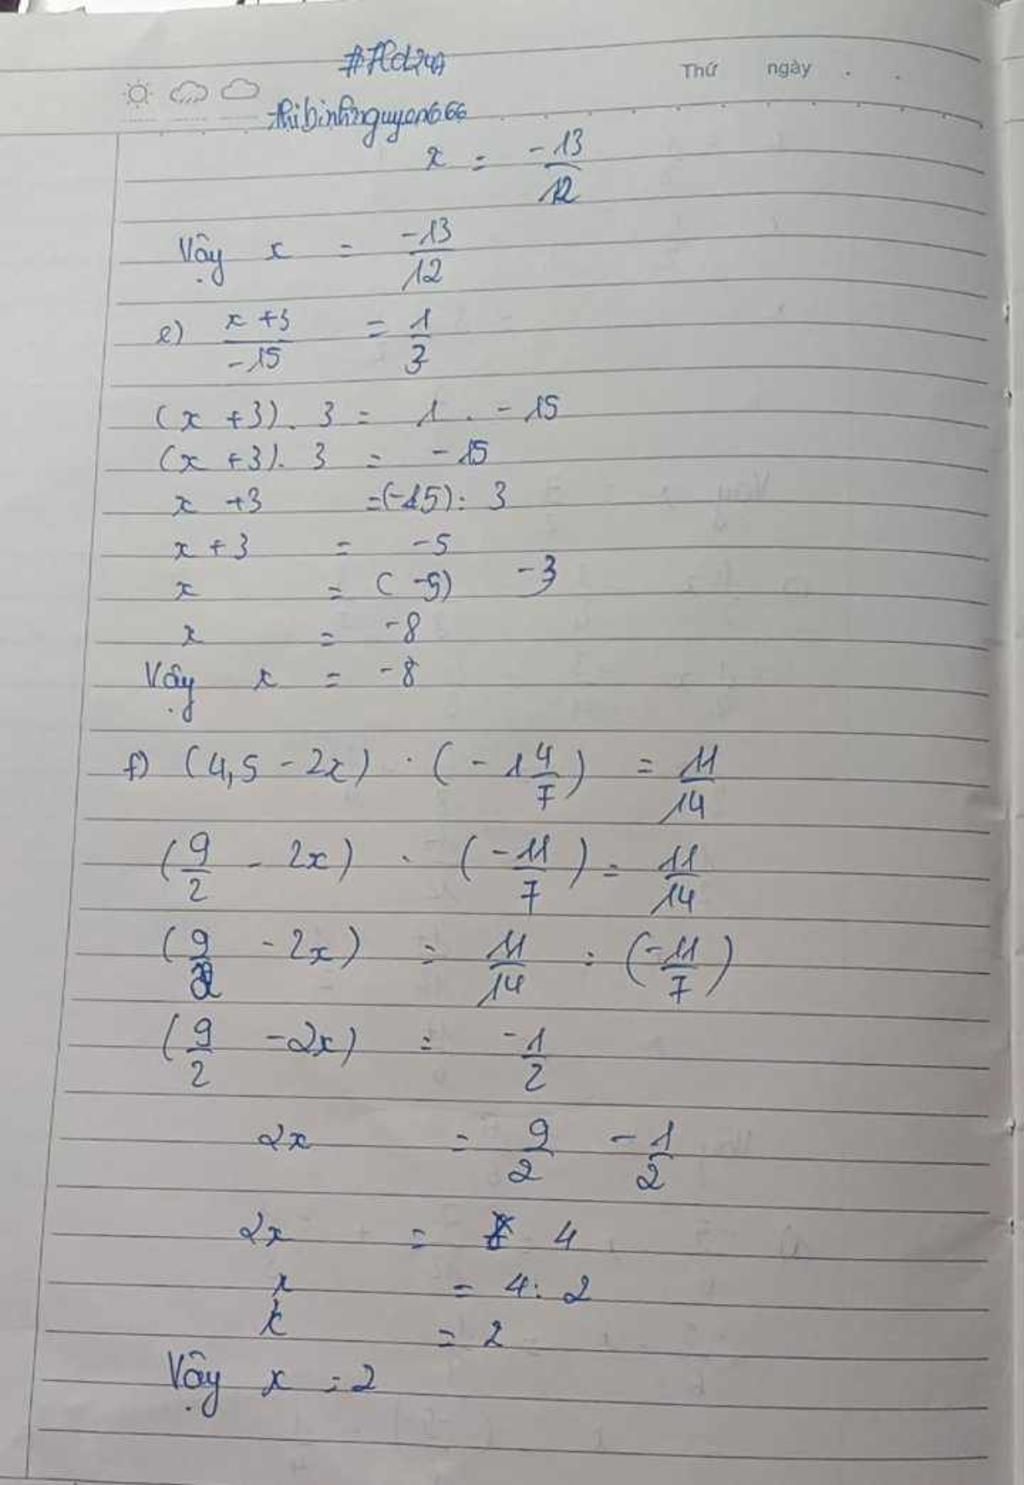 #Hd247
Thứ ngày . .
thibinhnguyen666
x = -13/12
Vậy x = -13/12
e) (x+3)/-15 = 1/3
(x+3). 3 = 1 . -15
(x+3). 3 = -15
x +3 =(-15): 3
x+3 = -5
x = (-5) -3
x = -8
Vậy x = -8
f) (4,5 - 2x) . (-1 4/7) = 11/14
(9/2 - 2x) . (-11/7) = 11/14
(9/2 - 2x) = 11/14 : (-11/7)
(9/2 - 2x) = -1/2
2x = 9/2 - 1/2
2x = 4
x = 4: 2
x = 2
Vậy x = 2